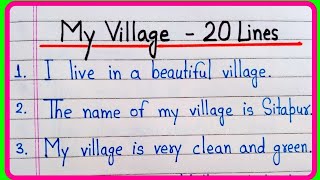 My Village - 20 Lines
1. I live in a beautiful village.
2. The name of my village is Sitapur.
3. My village is very clean and green.